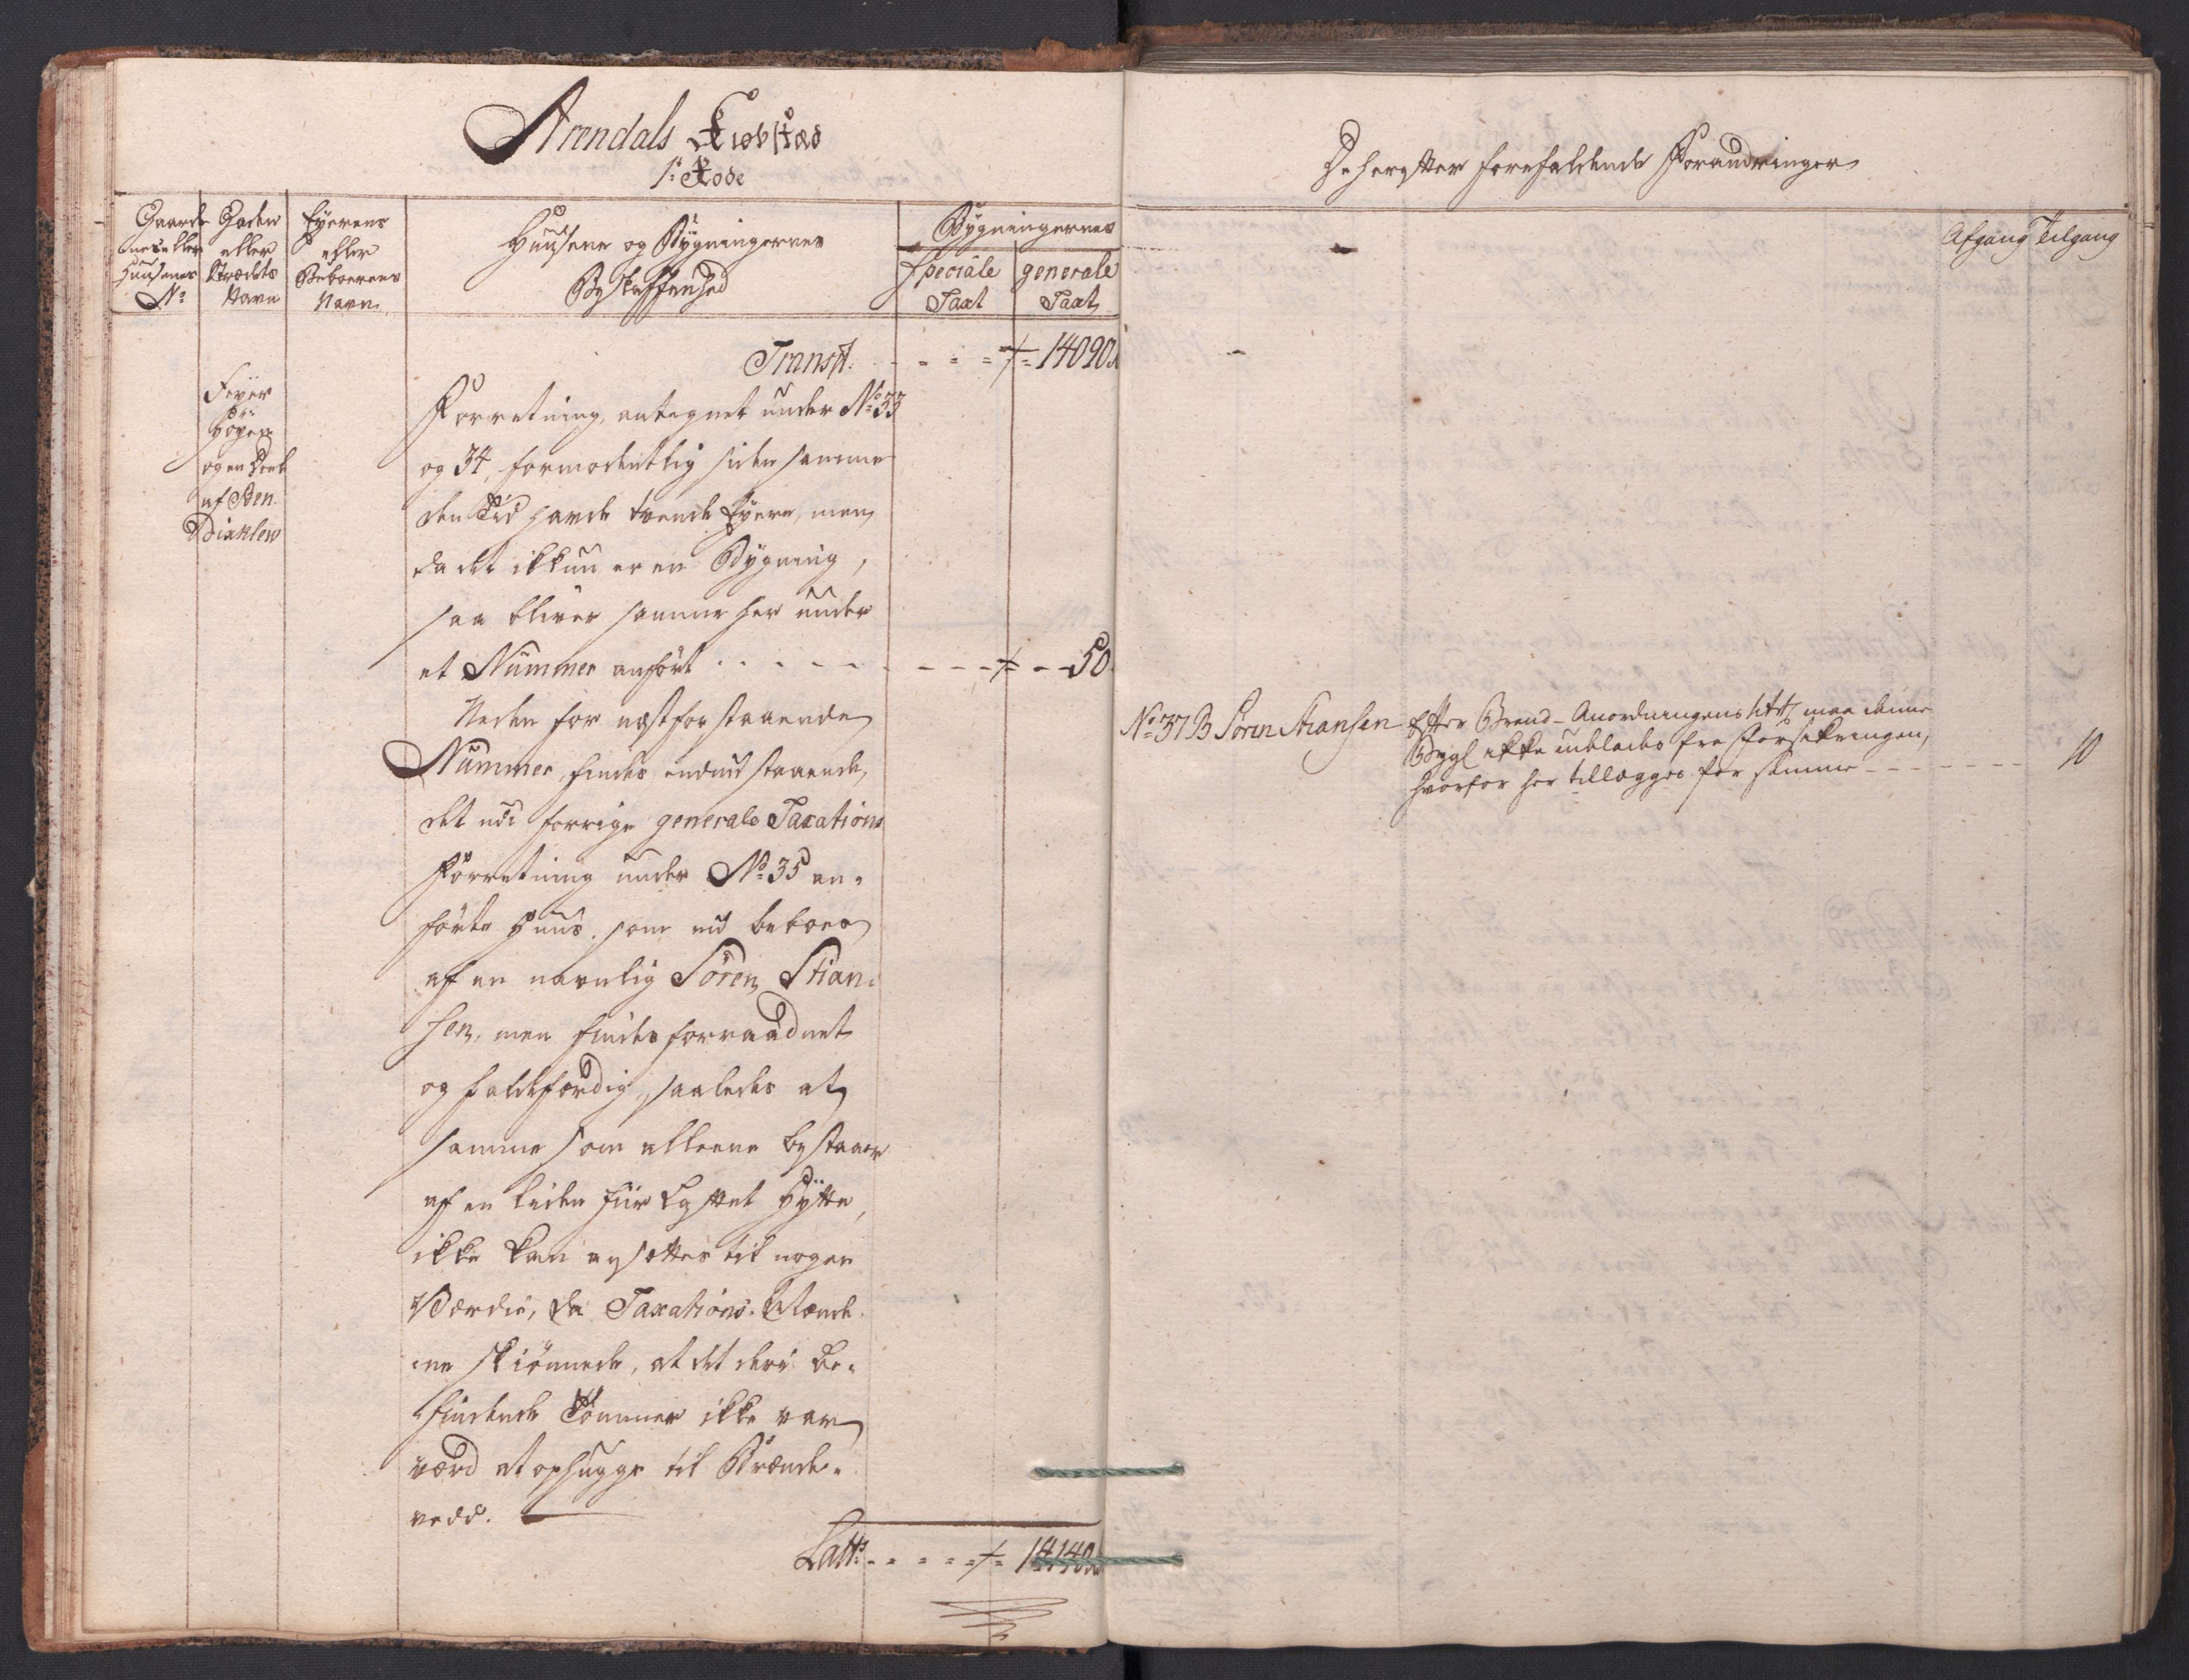 Arendals Kiøbstæd
1: Rode
Gaarde
nes eller
Huusenes
No
Gaden
eller
Strædets
Navn
Eyerens
eller
Beboerens
Navn.
Huusene og Bygningernes
Beskaffenhed
Bygningernes
speciale
Taxt
generale
Taxt
Transpt: - - - 14090
Feyer
Høyen
og en Deel
af Ben.
Dixklew
Forretning, antegnet under No 33
og 34, formodentlig siden samme
den Tid havde tvende Eyere, men
da det ikkun er en Bygning,
saa bliver samme her under
et Nummer anført - - - - - - - 50.
Neden for næstforstaaende
Nummer, findes endnu staaende,
det udi forrige generale Taxations
Forretning under No 35 an-
førte Huus, som nu beboes
af en navnlig Søren Stian-
sen, men findes forraadnet
og faldefærdig, saaledes at
samme som alleene bestaaer
af en liden Hytte,
ikke kan ansættes til nogen
Værdie, da Taxations-Mænde-
ne skiønnede, at det deri be-
findende Tømmer ikke var
værd at ophugge til Brænde-
vedd.
Latt: - - - - - 14140
Deherefter forefaldende Forandringer
Afgang Tilgang
No 37 B Søren Stiansen Efter Brand-Anordningens maa denne
Bygn ikke udelades fra Forsikringen,
hvorfor her tillægges for samme - - - - - - 10